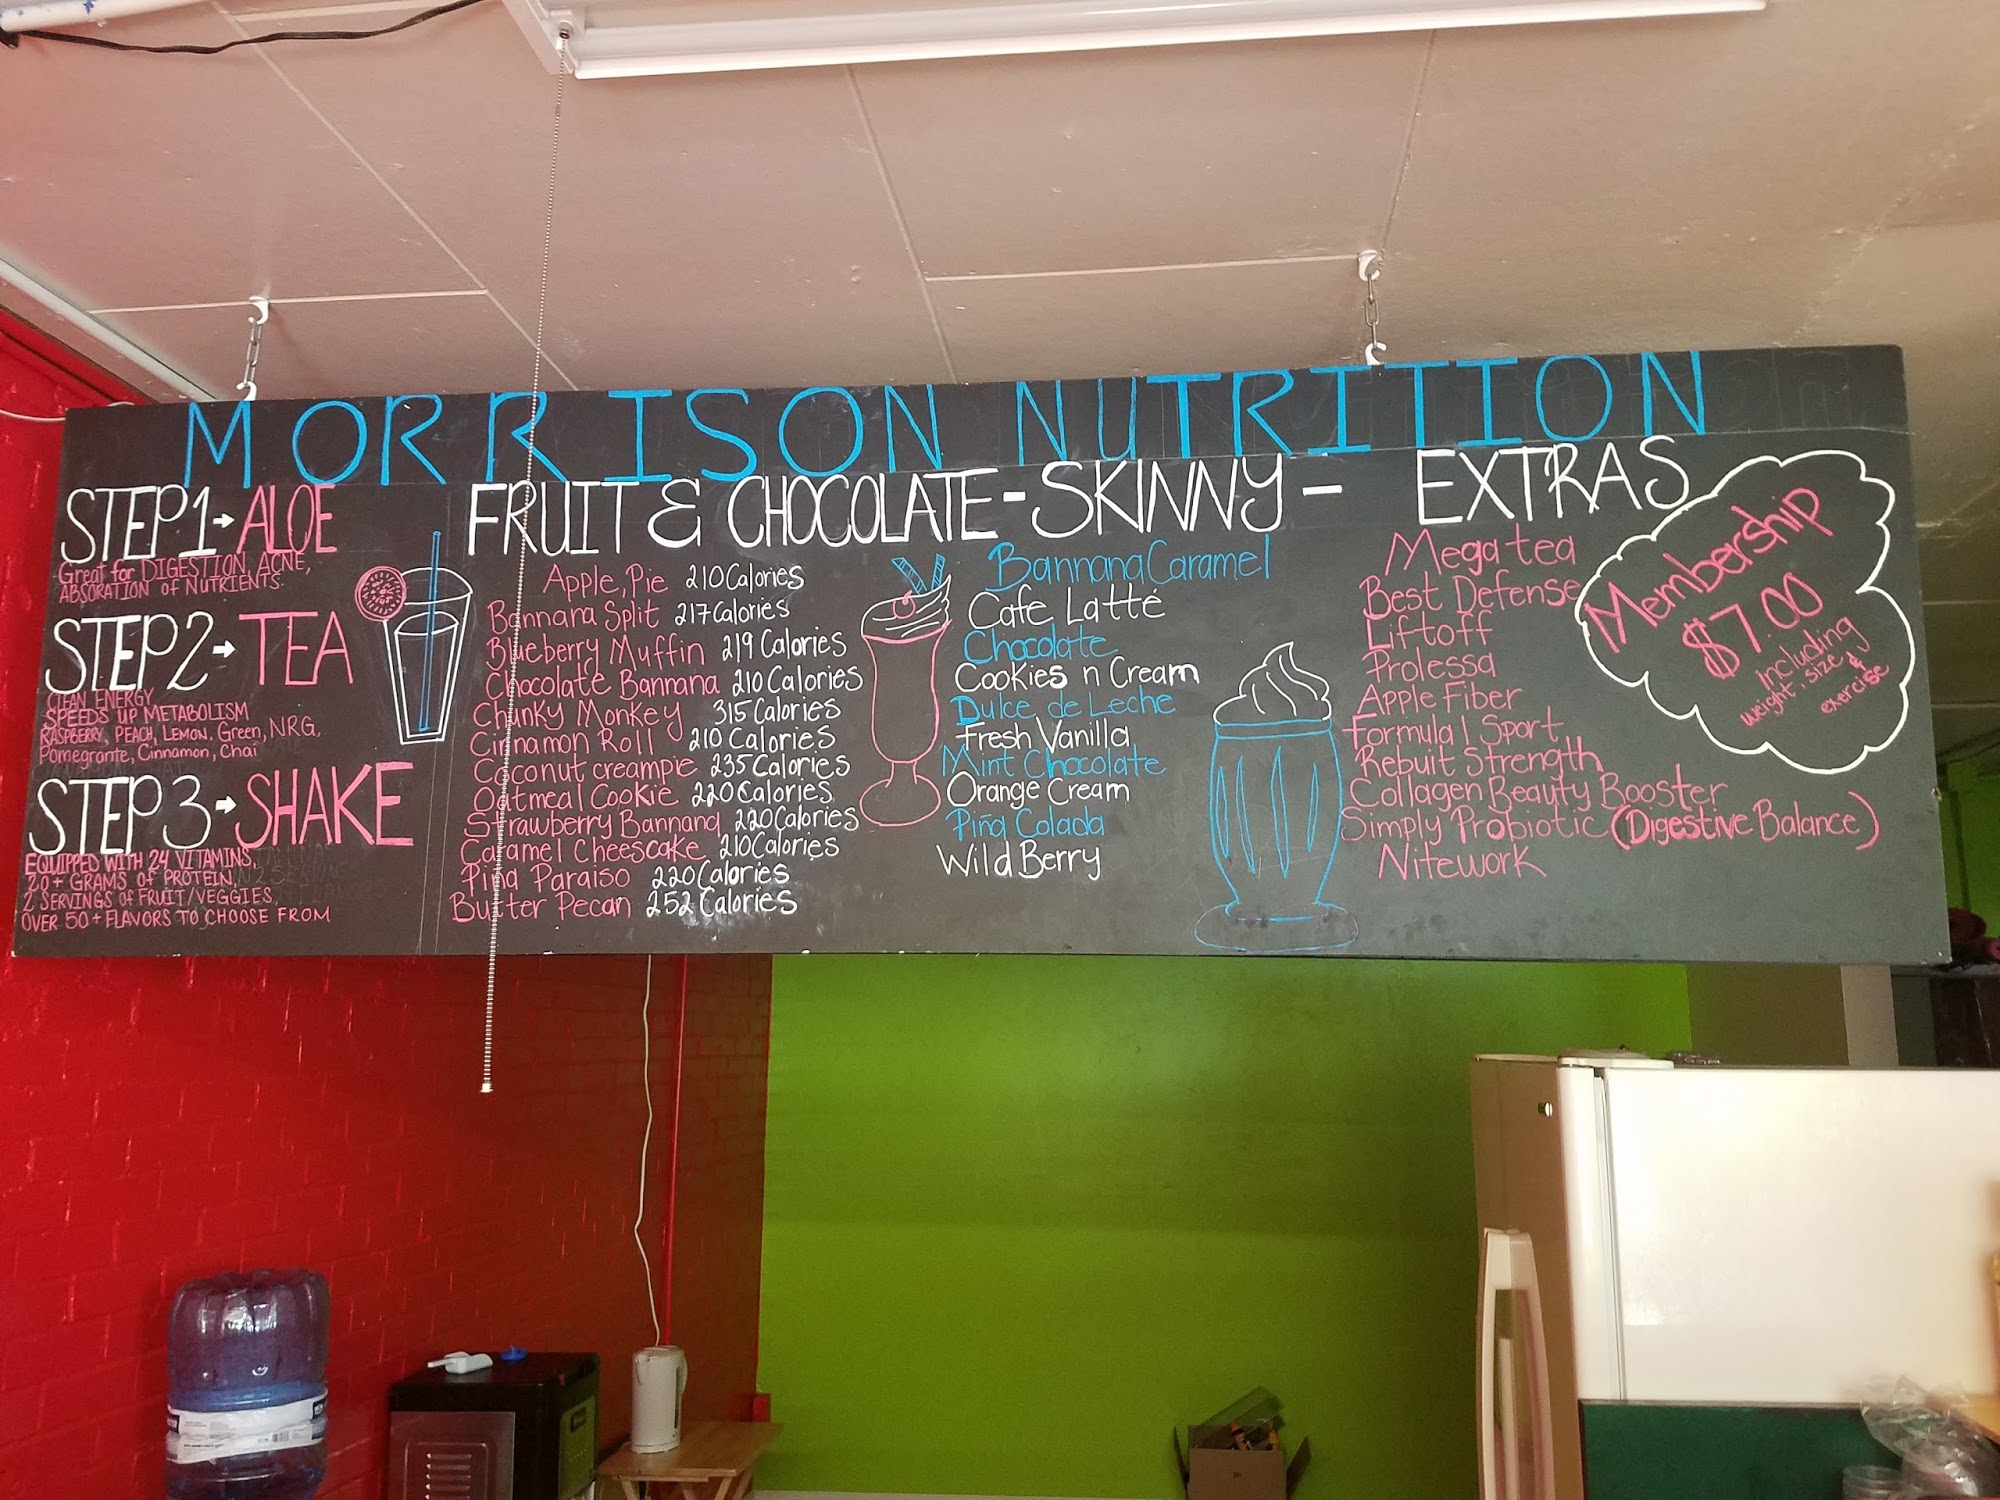 MORRISON NUTRITION
STEP 1 → ALOE
Great for DIGESTION, ACNE,
ABSORATION of NUTRIENTS.
STEP 2 → TEA
CLEAN ENERGY
SPEEDS UP METABOLISM
RASPBERRY, PEACH, LEMON, Green, NRG,
Pomegrante, Cinnamon, Chai
STEP 3 → SHAKE
EQUIPPED WITH 24 VITAMINS,
20+ GRAMS OF PROTEIN,
2 SERVINGS OF FRUIT/VEGGIES,
OVER 50+ FLAVORS TO CHOOSE FROM
FRUIT & CHOCOLATE - SKINNY -
Apple, Pie 210 Calories
Bannana Split 217 Calories
Blueberry Muffin 219 Calories
Chocolate Bannana 210 Calories
Chunky Monkey 315 Calories
Cinnamon Roll 210 Calories
Coconut creampie 235 Calories
Oatmeal Cookie 220 Calories
Strawberry Bannana 220 Calories
Caramel Cheescake 210 Calories
Piña Paraiso 220 Calories
Butter Pecan 252 Calories
Bannana Caramel
Cafe Latté
Chocolate
Cookies n Cream
Dulce de Leche
Fresh Vanilla
Mint Chocolate
Orange Cream
Piña Colada
Wild Berry
EXTRAS
Mega tea
Best Defense
Liftoff
Prolessa
Apple Fiber
Formula 1 Sport
Rebuit Strength
Collagen Beauty Booster
Simply Probiotic (Digestive Balance)
Nitework
Membership
$7.00
Including
weight, size, &
exercise